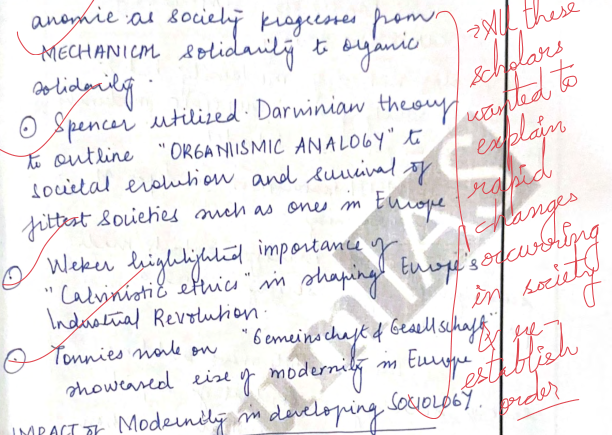 anomic as society progresses from
MECHANICAL solidarity to organic
solidarity.
Spencer utilized Darwinian theory
to outline "ORGANISMIC ANALOGY" to
societal evolution and survival of
fittest societies such as ones in Europe.
Weber highlighted importance of
"Calvinistic ethics" in shaping Europe's
Industrial Revolution.
Tonnies work on "Gemeinschaft & Gesellschaft"
showcased rise of modernity in Europe
IMPACT OF Modernity in developing SOCIOLOGY.
→ All these
scholars
wanted to
explain
rapid
changes
occurring
in society
& re-
establish
order
IAS